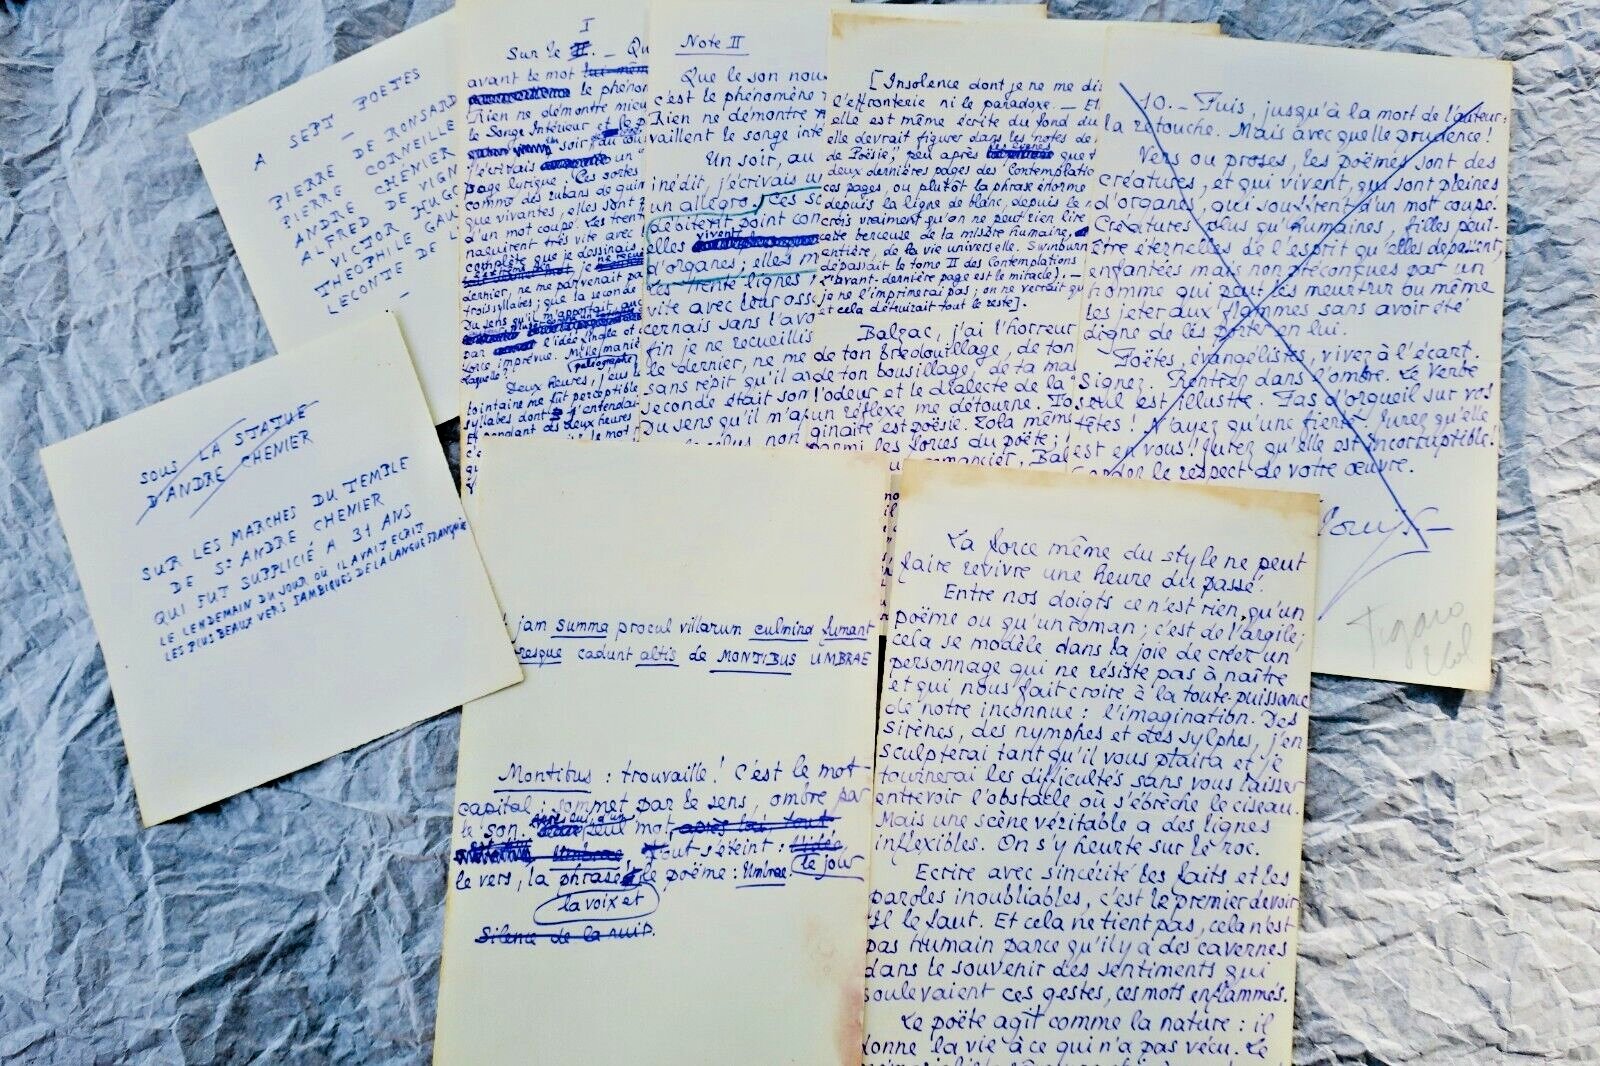 A SEPT POETES
—
PIERRE DE RONSARD
PIERRE CORNEILLE
ANDRE CHENIER
ALFRED DE VIGN
VICTOR HUGO
THEOPHILE GAU
LECONTE DE L
—
SOUS LA STATUE
D'ANDRE CHENIER
SUR LES MARCHES DU TEMPLE
DE St ANDRE CHENIER
QUI FUT SUPPLICIÉ A 31 ANS
LE LENDEMAIN DU JOUR OÙ IL AVAIT ECRIT
LES PLUS BEAUX VERS IAMBIQUES DE LA LANGUE FRANÇAISE
I
Sur le II. — Qu
avant le mot lui-mêm
le phénom
Rien ne démontre mieu
le Songe Intérieur et le p
soir, au cou
j'écrivais un
page lyrique. Ces sortes
comme des rubans de quin
que vivantes, elles sont
d'un mot coupé. Les trent
naquirent très vite avec
complète que je dessinais
je
dernier, ne me parvenait pa
trois syllabes; que la seconde
Du sens qu'il m'apportait,
par l'idée simple et
force imprévue. Mille manie
laquelle?
Deux heures, j'eus le
lointaine me fut perceptible
syllabes dont j'entendai
Et pendant des deux heures
Note II
Que le son nou
c'est le phénomène
Rien ne démontre m
vaillent le songe inté
Un soir, au
inédit, j'écrivais un
un allegro. Ces so
déoitent point con
vivent
elles
d'organes; elles m
les trente lignes
vite avec leur osse
cernais sans l'avo
fin je ne recueillis
le dernier, ne me
sans répit qu'il a
seconde était son
Du sens qu'il m'a
plus non
[Insolence dont je ne me dis
l'effronterie ni le paradoxe. — Et
elle est même écrite du fond du
elle devrait figurer dans les notes de
de Poésie; peu après les lignes que
deux dernières pages des "Contemplatio
ces pages, ou plutôt la phrase énorme
depuis la ligne de blanc, depuis le
crois vraiment qu'on ne peut rien lire
cette berceuse de la misère humaine,
entière, de la vie universelle. Swinburn
dépassait le tome II des Contemplations
(l'avant-dernière page est le miracle). —
je ne l'imprimerai pas; on ne verrait qu
et cela détruirait tout le reste].
Balzac, j'ai l'horreur
de ton bredouillage, de ton
de ton bousillage, de ta ma
l'odeur et le dialecte de la
un réflexe me détourne. To
ginaire est poésie. Zola mêm
parmi les forces du poète;
romancier, Bal
10. — Puis, jusqu'à la mort de l'auteur:
la retouche. Mais avec quelle prudence!
Vers ou proses, les poëmes sont des
créatures, et qui vivent, qui sont pleines
d'organes, qui souffrent d'un mot coupé.
Créatures plus qu'humaines, filles peut-
être éternelles de l'esprit qu'elles dépassent,
enfantées mais non préconçues par un
homme qui peut les meurtrir ou même
les jeter aux flammes sans avoir été
digne de les porter en lui.
Poëtes, évangélistes, vivez à l'écart.
Signez. Rentrez dans l'ombre. Le Verbe
seul est illustre. Pas d'orgueil sur vos
têtes! N'ayez qu'une fierté. Jurez qu'elle
est en vous! Jurez qu'elle est incorruptible!
Gardez le respect de votre œuvre.
Louÿs
Figaro
jam summa procul villarum culmina fumant
resque cadunt altis de MONTIBUS UMBRAE
Montibus: trouvaille! C'est le mot-
capital; sommet par le sens, ombre par
le son. Après lui, d'un seul mot, après lui, tout
Umbrae tout s'éteint: l'idée, le jour
le vers, la phrase, le poëme: Umbrae.
la voix et
Silence de la nuit.
La force même du style ne peut
faire revivre une heure du passé.
Entre nos doigts ce n'est rien, qu'un
poëme ou qu'un roman; c'est de l'argile;
cela se modèle dans la joie de créer un
personnage qui ne résiste pas à naître
et qui nous fait croire à la toute-puissance
de notre inconnue: l'imagination. Des
sirènes, des nymphes et des sylphes, j'en
sculpterai tant qu'il vous plaira et je
tournerai les difficultés sans vous laisser
entrevoir l'obstacle où s'ébrèche le ciseau.
Mais une scène véritable a des lignes
inflexibles. On s'y heurte sur le roc.
Ecrire avec sincérité les faits et les
paroles inoubliables, c'est le premier devoir.
Il le faut. Et cela ne tient pas, cela n'est
pas humain parce qu'il y a des cavernes
dans le souvenir des sentiments qui
soulevaient ces gestes, ces mots enflammés.
Le poëte agit comme la nature: il
donne la vie à ce qui n'a pas vécu. Le